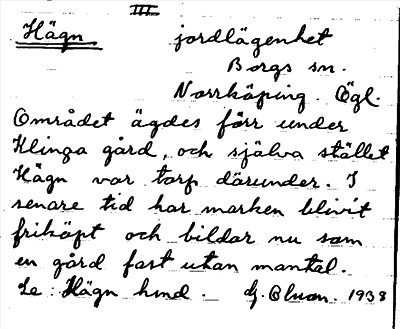 III.
Hägn jordlägenhet
Borgs sn.
Norrköping. Ögl.
Området ägdes förr under
Klinga gård, och själva stället
Hägn var torp därunder. I
senare tid har marken blivit
friköpt och bildar nu som
en gård fast utan mantal.
Se: Hägn hmd. 1938